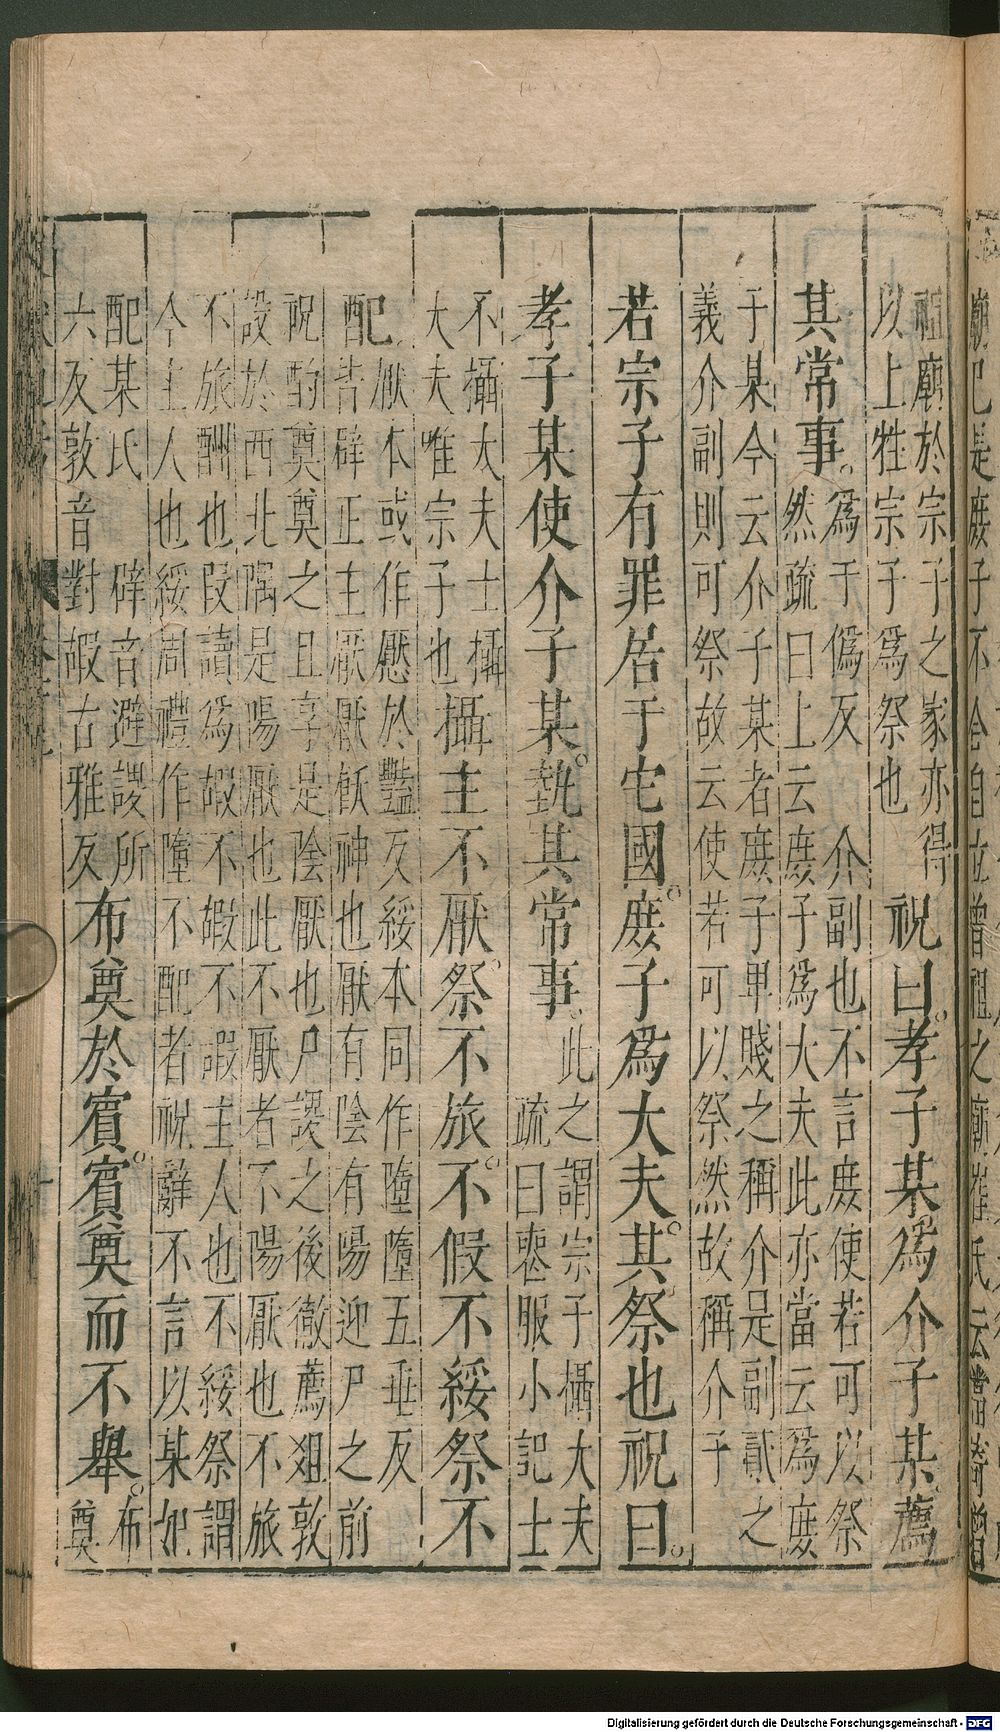 廟也是庶子不合自立曾祖之廟崔氏云當寄曾
祖廟於宗子之家亦得
以上牲宗子為祭也
祝曰。孝子某為介子某薦
其常事。
為于偽反 介副也不言庶使若可以祭
然疏曰上云庶子為大夫此亦當云為庶
于某今云介子某者庶子卑賤之稱介是副貳之
義介副則可祭故云使若可以祭然故稱介子
若宗子有罪居于宅國。庶子為大夫。其祭也祝曰。
孝子某使介子某。執其常事。
此之謂宗子攝大夫
疏曰喪服小記士
不攝大夫士攝
大夫唯宗子也
攝主不厭祭。不旅。不假不綏祭不
配
厭本或作懕於豔反綏本同作墮墮五垂反
皆辟正主厭厭飫神也厭有陰有陽迎尸之前
祝酌奠奠之且享是陰厭也尸謖之後徹薦俎敦
設於西北隅是陽厭也此不厭者不陽厭也不旅
不旅酬也叚讀為嘏不嘏不嘏主人也不綏祭謂
今主人也綏周禮作墮不配者祝辭不言以某妃
配某氏 辟音避謖所
六反敦音對嘏古雅反
布奠於賓。賓奠而不舉。
布
奠
Digitalisierung gefördert durch die Deutsche Forschungsgemeinschaft - DFG